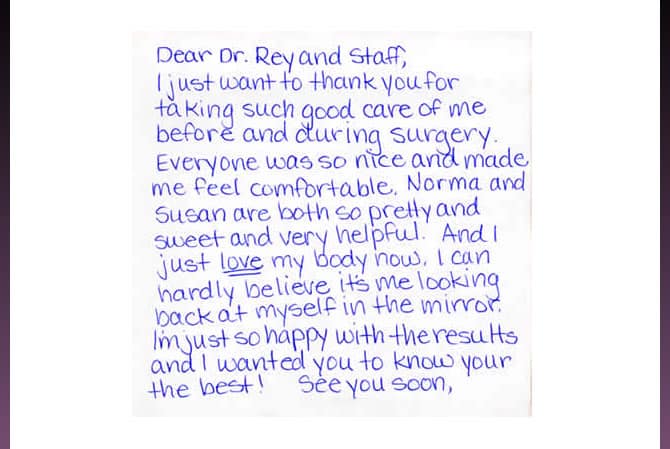 Dear Dr. Rey and Staff,
I just want to thank you for
taking such good care of me
before and during surgery.
Everyone was so nice and made
me feel comfortable. Norma and
Susan are both so pretty and
sweet and very helpful. And I
just love my body now. I can
hardly believe it's me looking
back at myself in the mirror.
I'm just so happy with the results
and I wanted you to know your
the best! See you soon,